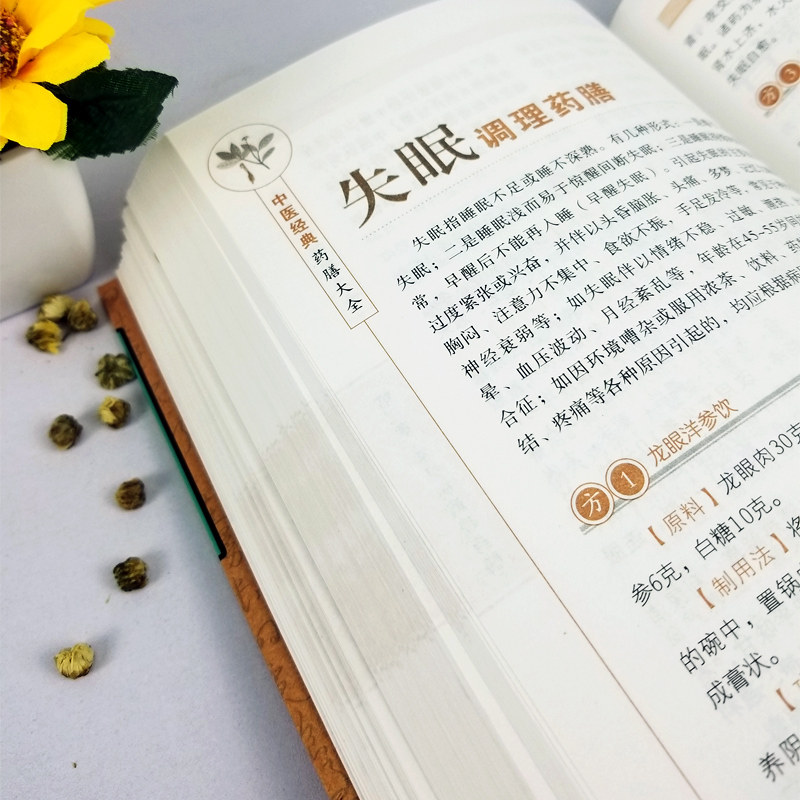 中医经典药膳大全
失眠调理药膳
失眠指睡眠不足或睡不深熟。有几种形式：一
失眠；二是睡眠浅而易于惊醒间断失眠；三是睡眠
常，早醒后不能再入睡（早醒失眠）。引起失眠的
过度紧张或兴奋，并伴以头昏脑胀、头痛、多梦、记
胸闷、注意力不集中、食欲不振、手足发冷等，常见于
神经衰弱等；如失眠伴以情绪不稳、过敏、潮热、
晕、血压波动、月经紊乱等，年龄在45~55岁
合征；如因环境嘈杂或服用浓茶、饮料、药
结、疼痛等各种原因引起的，均应根据病
方1 龙眼洋参饮
【原料】龙眼肉30克
参6克，白糖10克。
【制用法】将
的碗中，置锅
成膏状。
【
养阴
方3